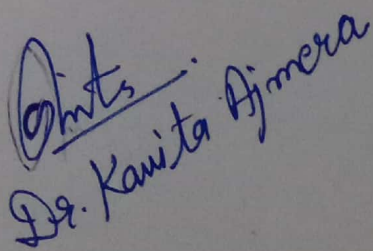 Dr. Kavita Ajmera